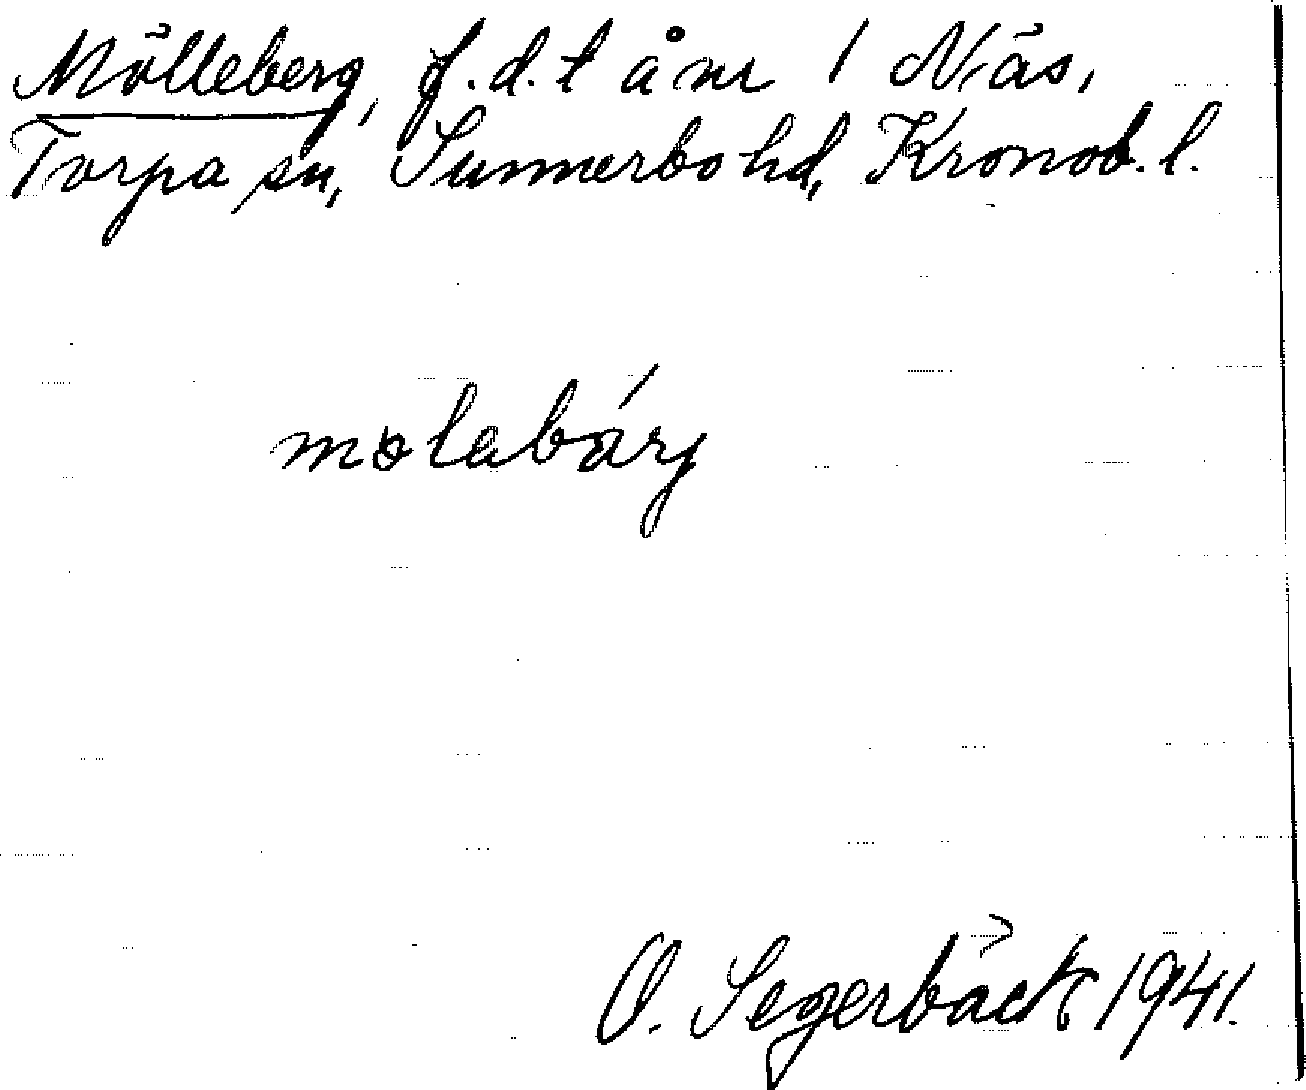 Mölleberg, f.d. t å nr 1 Näs,
Torpa sn, Sunnerbo hd, Kronob. l.
mølabárj
O. Segerbäck 1941.